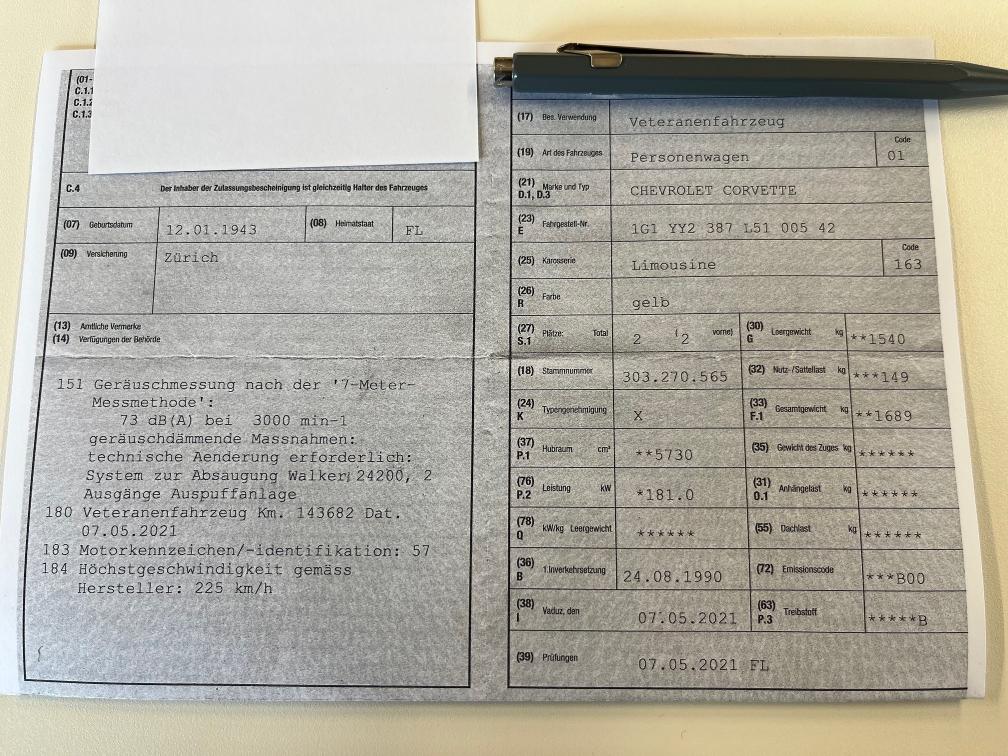 (01-
C.1.1
C.1.2
C.1.3
C.4 Der Inhaber der Zulassungsbescheinigung ist gleichzeitig Halter des Fahrzeuges
(07) Geburtsdatum 12.01.1943 (08) Heimatstaat FL
(09) Versicherung Zürich
(13) Amtliche Vermerke
(14) Verfügungen der Behörde
151 Geräuschmessung nach der '7-Meter-
Messmethode':
73 dB(A) bei 3000 min-1
geräuschdämmende Massnahmen:
technische Aenderung erforderlich:
System zur Absaugung Walker 24200, 2
Ausgänge Auspuffanlage
180 Veteranenfahrzeug Km. 143682 Dat.
07.05.2021
183 Motorkennzeichen/-identifikation: 57
184 Höchstgeschwindigkeit gemäss
Hersteller: 225 km/h
(17) Bes. Verwendung Veteranenfahrzeug
(19) Art des Fahrzeuges Personenwagen Code 01
(21) D.1, D.3 Marke und Typ CHEVROLET CORVETTE
(23) E Fahrgestell-Nr. 1G1 YY2 387 L51 005 42
(25) Karosserie Limousine Code 163
(26) R Farbe gelb
(27) S.1 Plätze: Total 2 (2 vorne) (30) G Leergewicht kg **1540
(18) Stammnummer 303.270.565 (32) Nutz-/Sattellast kg ***149
(24) K Typengenehmigung X (33) F.1 Gesamtgewicht kg **1689
(37) P.1 Hubraum cm³ **5730 (35) Gewicht des Zuges kg ******
(76) P.2 Leistung kW *181.0 (31) O.1 Anhängelast kg ******
(78) Q kW/kg Leergewicht ****** (55) Dachlast kg ******
(36) B 1.Inverkehrsetzung 24.08.1990 (72) Emissionscode ***B00
(38) I Vaduz, den 07.05.2021 (63) P.3 Treibstoff *****B
(39) Prüfungen 07.05.2021 FL